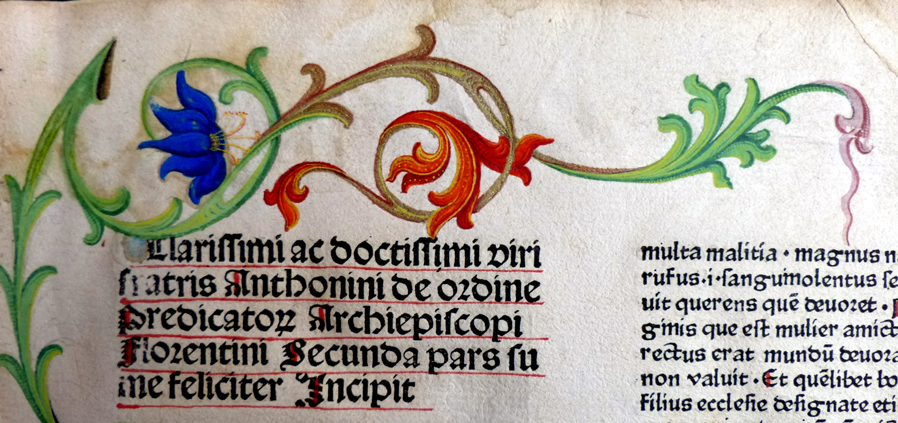 Clarissimi ac doctissimi viri
fratris Anthonini de ordine
Predicatoꝝ Archiepiscopi
Florentini Secunda pars su
me feliciter Incipit
multa malitia · magnus
rufus · i · sanguinolentus
uit querens quē deuoret ·
ginis que est mulier
rectus erat mundū
non valuit · Et quēlibet
filius ecclesie designate